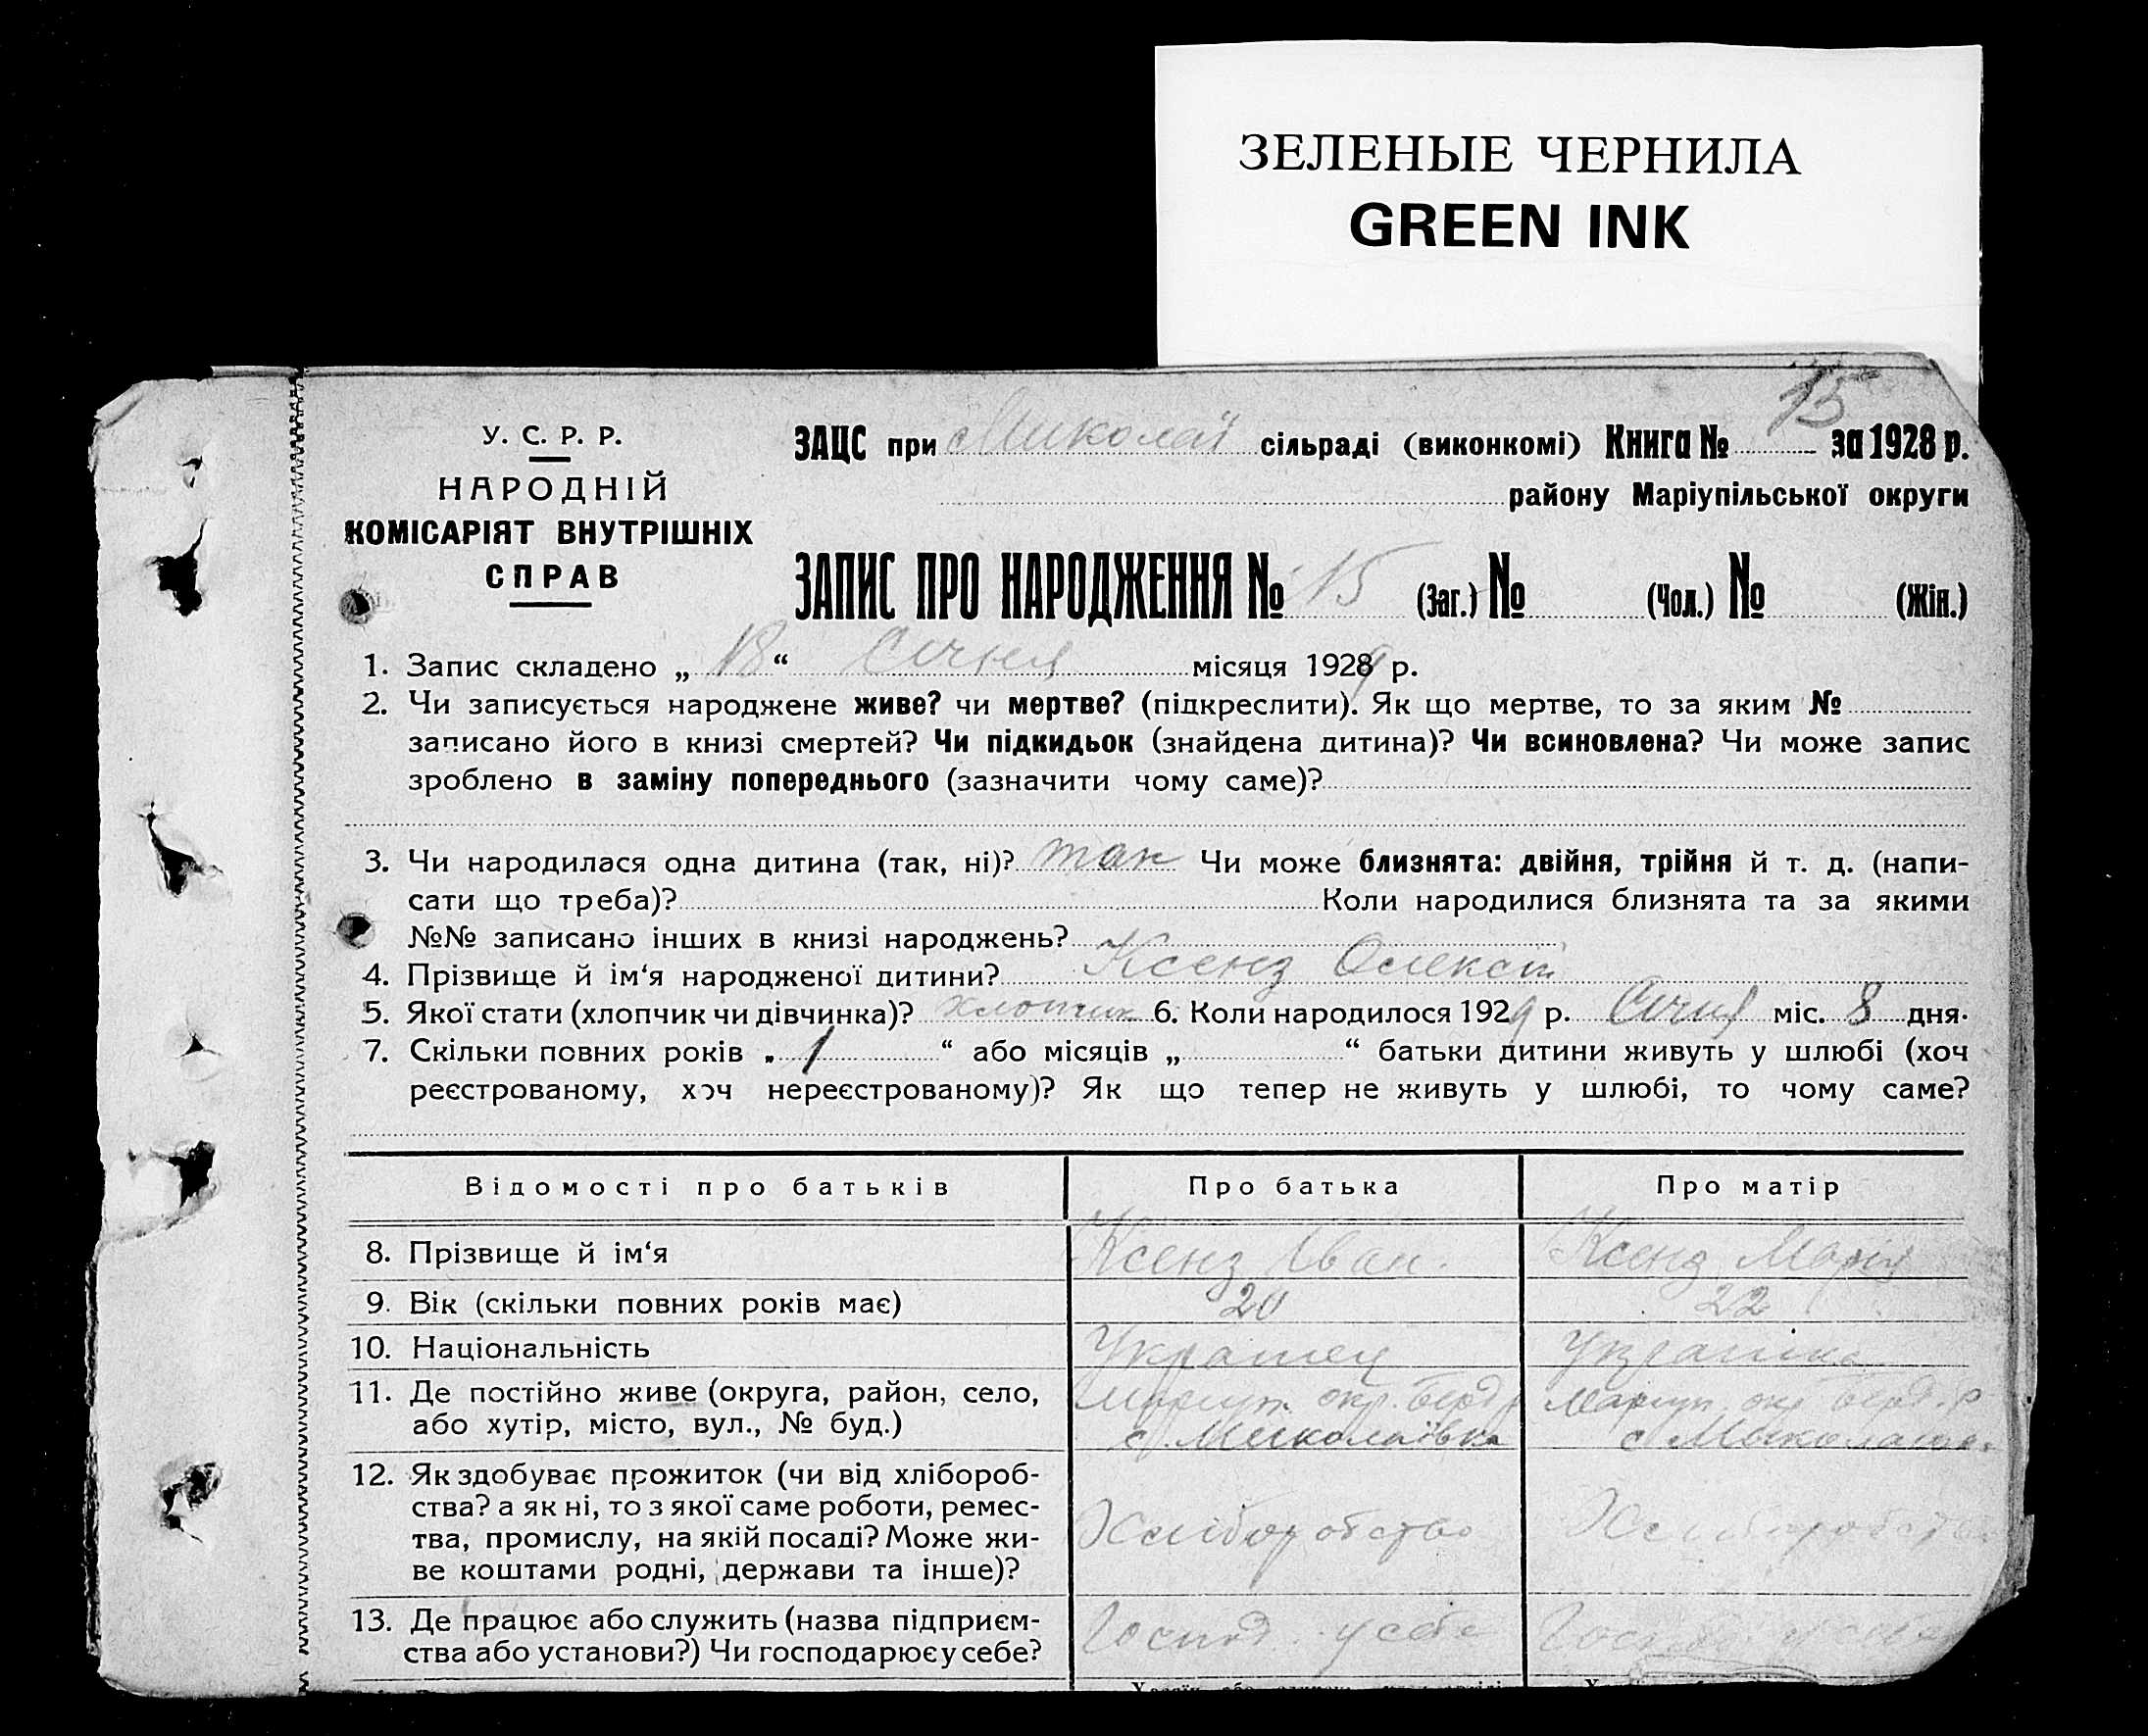 ЗЕЛЕНЫЕ ЧЕРНИЛА
GREEN INK
15
У. С. Р. Р.
НАРОДНІЙ
КОМІСАРІЯТ ВНУТРІШНІХ
СПРАВ
ЗАЦС при с Миколаї сільраді (виконкомі) Книга № за 1928 р.
району Маріупільської округи
ЗАПИС ПРО НАРОДЖЕННЯ № 15 (Заг.) № (Чол.) № (Жін.)
1. Запис складено „ 18 “ Січня місяця 1929 р.
2. Чи записується народжене живе? чи мертве? (підкреслити). Як що мертве, то за яким №
записано його в книзі смертей? Чи підкидьок (знайдена дитина)? Чи всиновлена? Чи може запис
зроблено в заміну попереднього (зазначити чому саме)?
3. Чи народилася одна дитина (так, ні)? так Чи може близнята: двійня, трійня й т. д. (напи-
сати що треба)? Коли народилися близнята та за якими
№№ записано інших в книзі народжень?
4. Прізвище й ім‘я народженої дитини? Ксенз Олексій
5. Якої стати (хлопчик чи дівчинка)? хлопчик 6. Коли народилося 1929 р. Січня міс. 8 дня.
7. Скільки повних років „ 1 “ або місяців „ “ батьки дитини живуть у шлюбі (хоч
реєстрованому, хоч нереєстрованому)? Як що тепер не живуть у шлюбі, то чому саме?
Відомості про батьків Про батька Про матір
8. Прізвище й ім‘я Ксенз Іван. Ксенз Марія
9. Вік (скільки повних років має) 20 22
10. Національність Українец Українка
11. Де постійно живе (округа, район, село, Маріуп. окр. Берд р Маріуп. окр Берд. р
або хутір, місто, вул., № буд.) с. Миколаївка с Миколаїв.
12. Як здобуває прожиток (чи від хлібороб-
ства? а як ні, то з якої саме роботи, ремес- Хліборобство Хліборобство
тва, промислу, на якій посаді? Може жи-
ве коштами родні, держави та інше)?
13. Де працює або служить (назва підприєм- Господ. у себе Господ. у себе
ства або установи?) Чи господарює у себе?